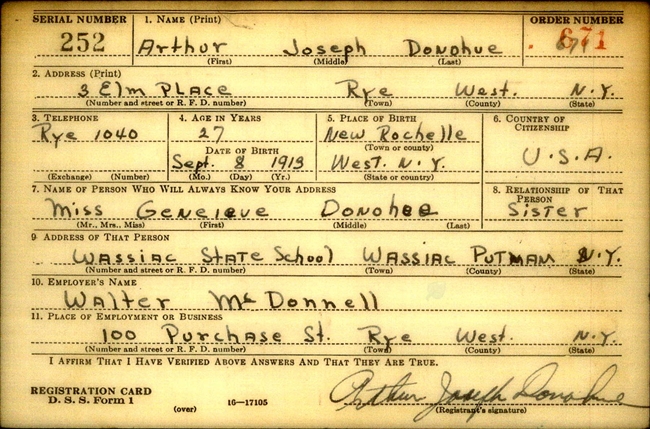 SERIAL NUMBER 1. NAME (Print) ORDER NUMBER
252 Arthur Joseph Donohue 671
(First) (Middle) (Last)
2. ADDRESS (Print)
3 Elm PLACE Rye West. N.Y.
(Number and street or R. F. D. number) (Town) (County) (State)
3. TELEPHONE 4. AGE IN YEARS 5. PLACE OF BIRTH 6. COUNTRY OF CITIZENSHIP
Rye 1040 27 New Rochelle U.S.A.
DATE OF BIRTH (Town or county)
Sept. 8 1913 West. N.Y.
(Exchange) (Number) (Mo.) (Day) (Yr.) (State or country)
7. NAME OF PERSON WHO WILL ALWAYS KNOW YOUR ADDRESS 8. RELATIONSHIP OF THAT PERSON
Miss Genevieve Donohoe Sister
(Mr., Mrs., Miss) (First) (Middle) (Last)
9. ADDRESS OF THAT PERSON
WASSIAC STATE School WASSIAC PUTMAN N.Y.
(Number and street or R. F. D. number) (Town) (County) (State)
10. EMPLOYER'S NAME
Walter McDonnell
11. PLACE OF EMPLOYMENT OR BUSINESS
100 Purchase St. Rye West. N.Y.
(Number and street or R. F. D. number) (Town) (County) (State)
I AFFIRM THAT I HAVE VERIFIED ABOVE ANSWERS AND THAT THEY ARE TRUE.
REGISTRATION CARD
D. S. S. Form 1 (over) 16—17105 Arthur Joseph Donohue
(Registrant's signature)